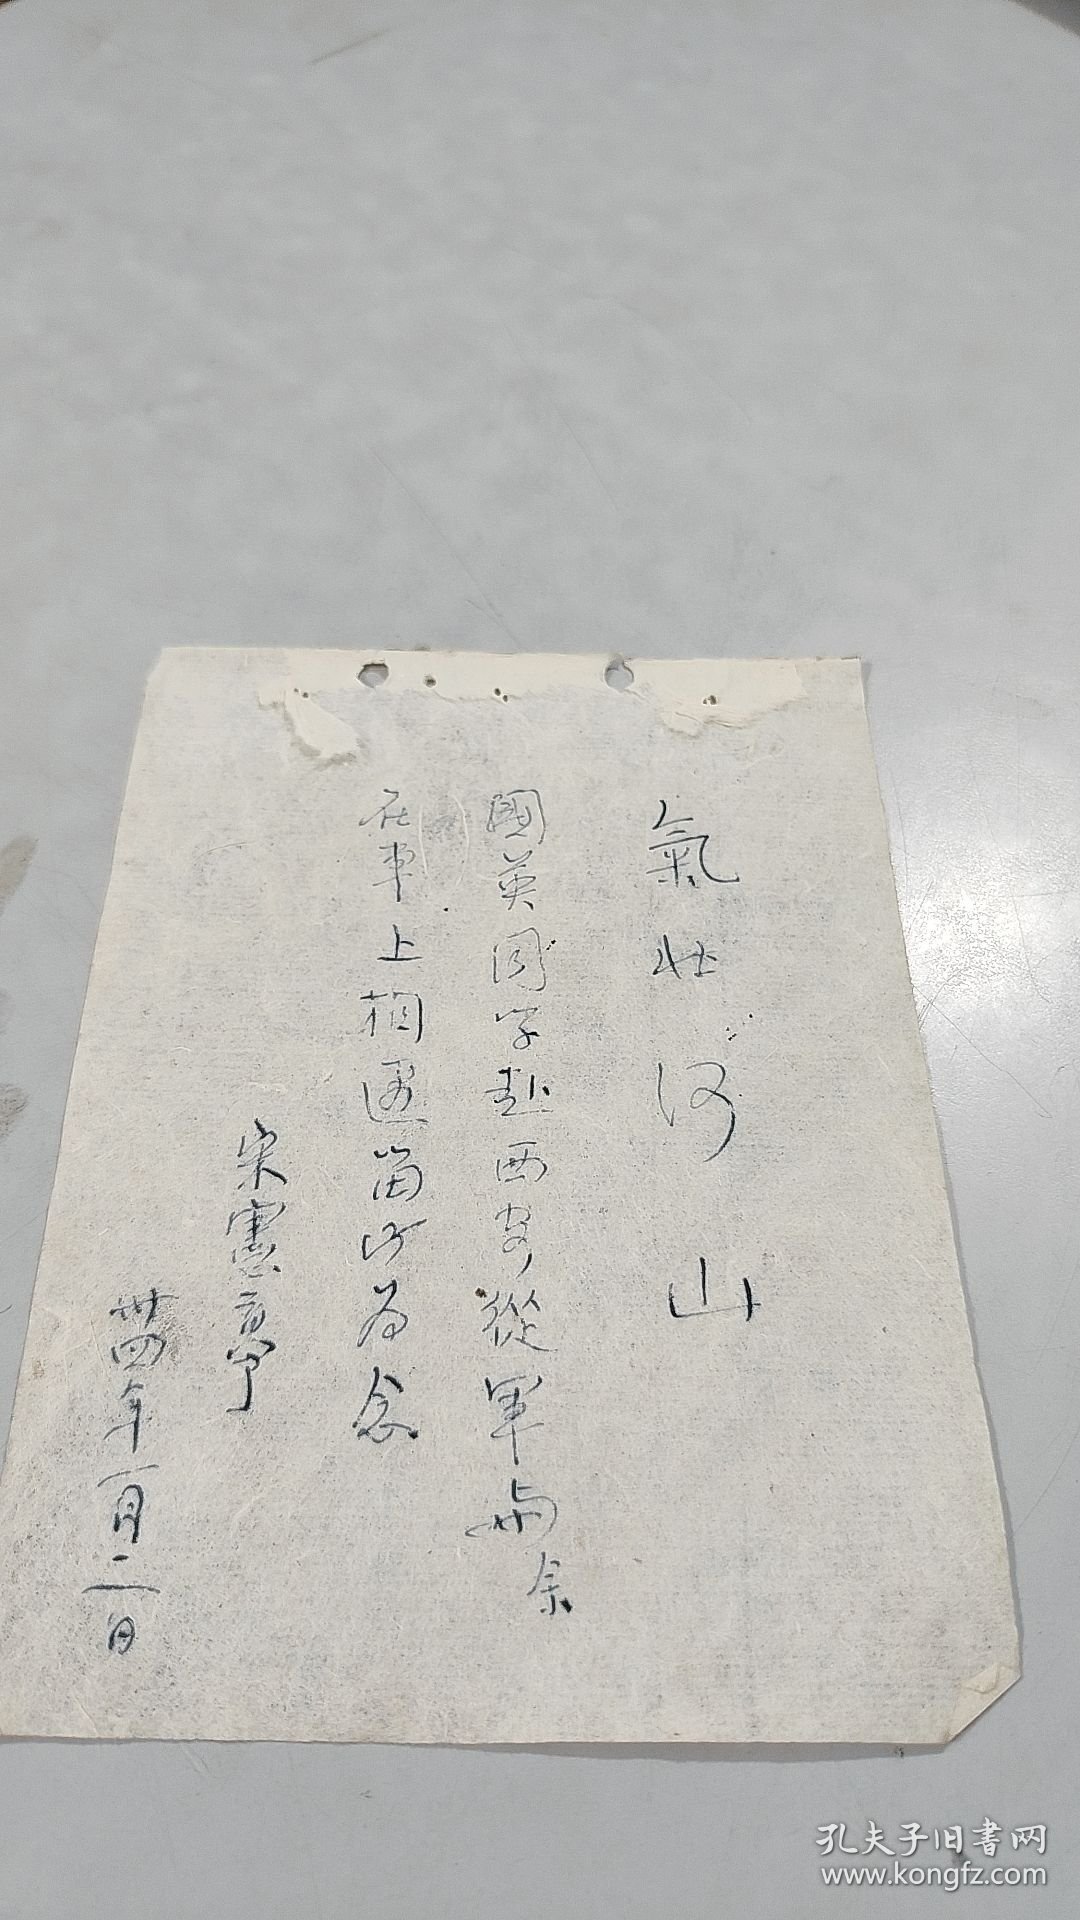 氣壯河山
國英同学赴西安從軍與余
在車上相遇留此为念
宋憲亭
卅四年一月二日
孔夫子旧書网
www.kongfz.com